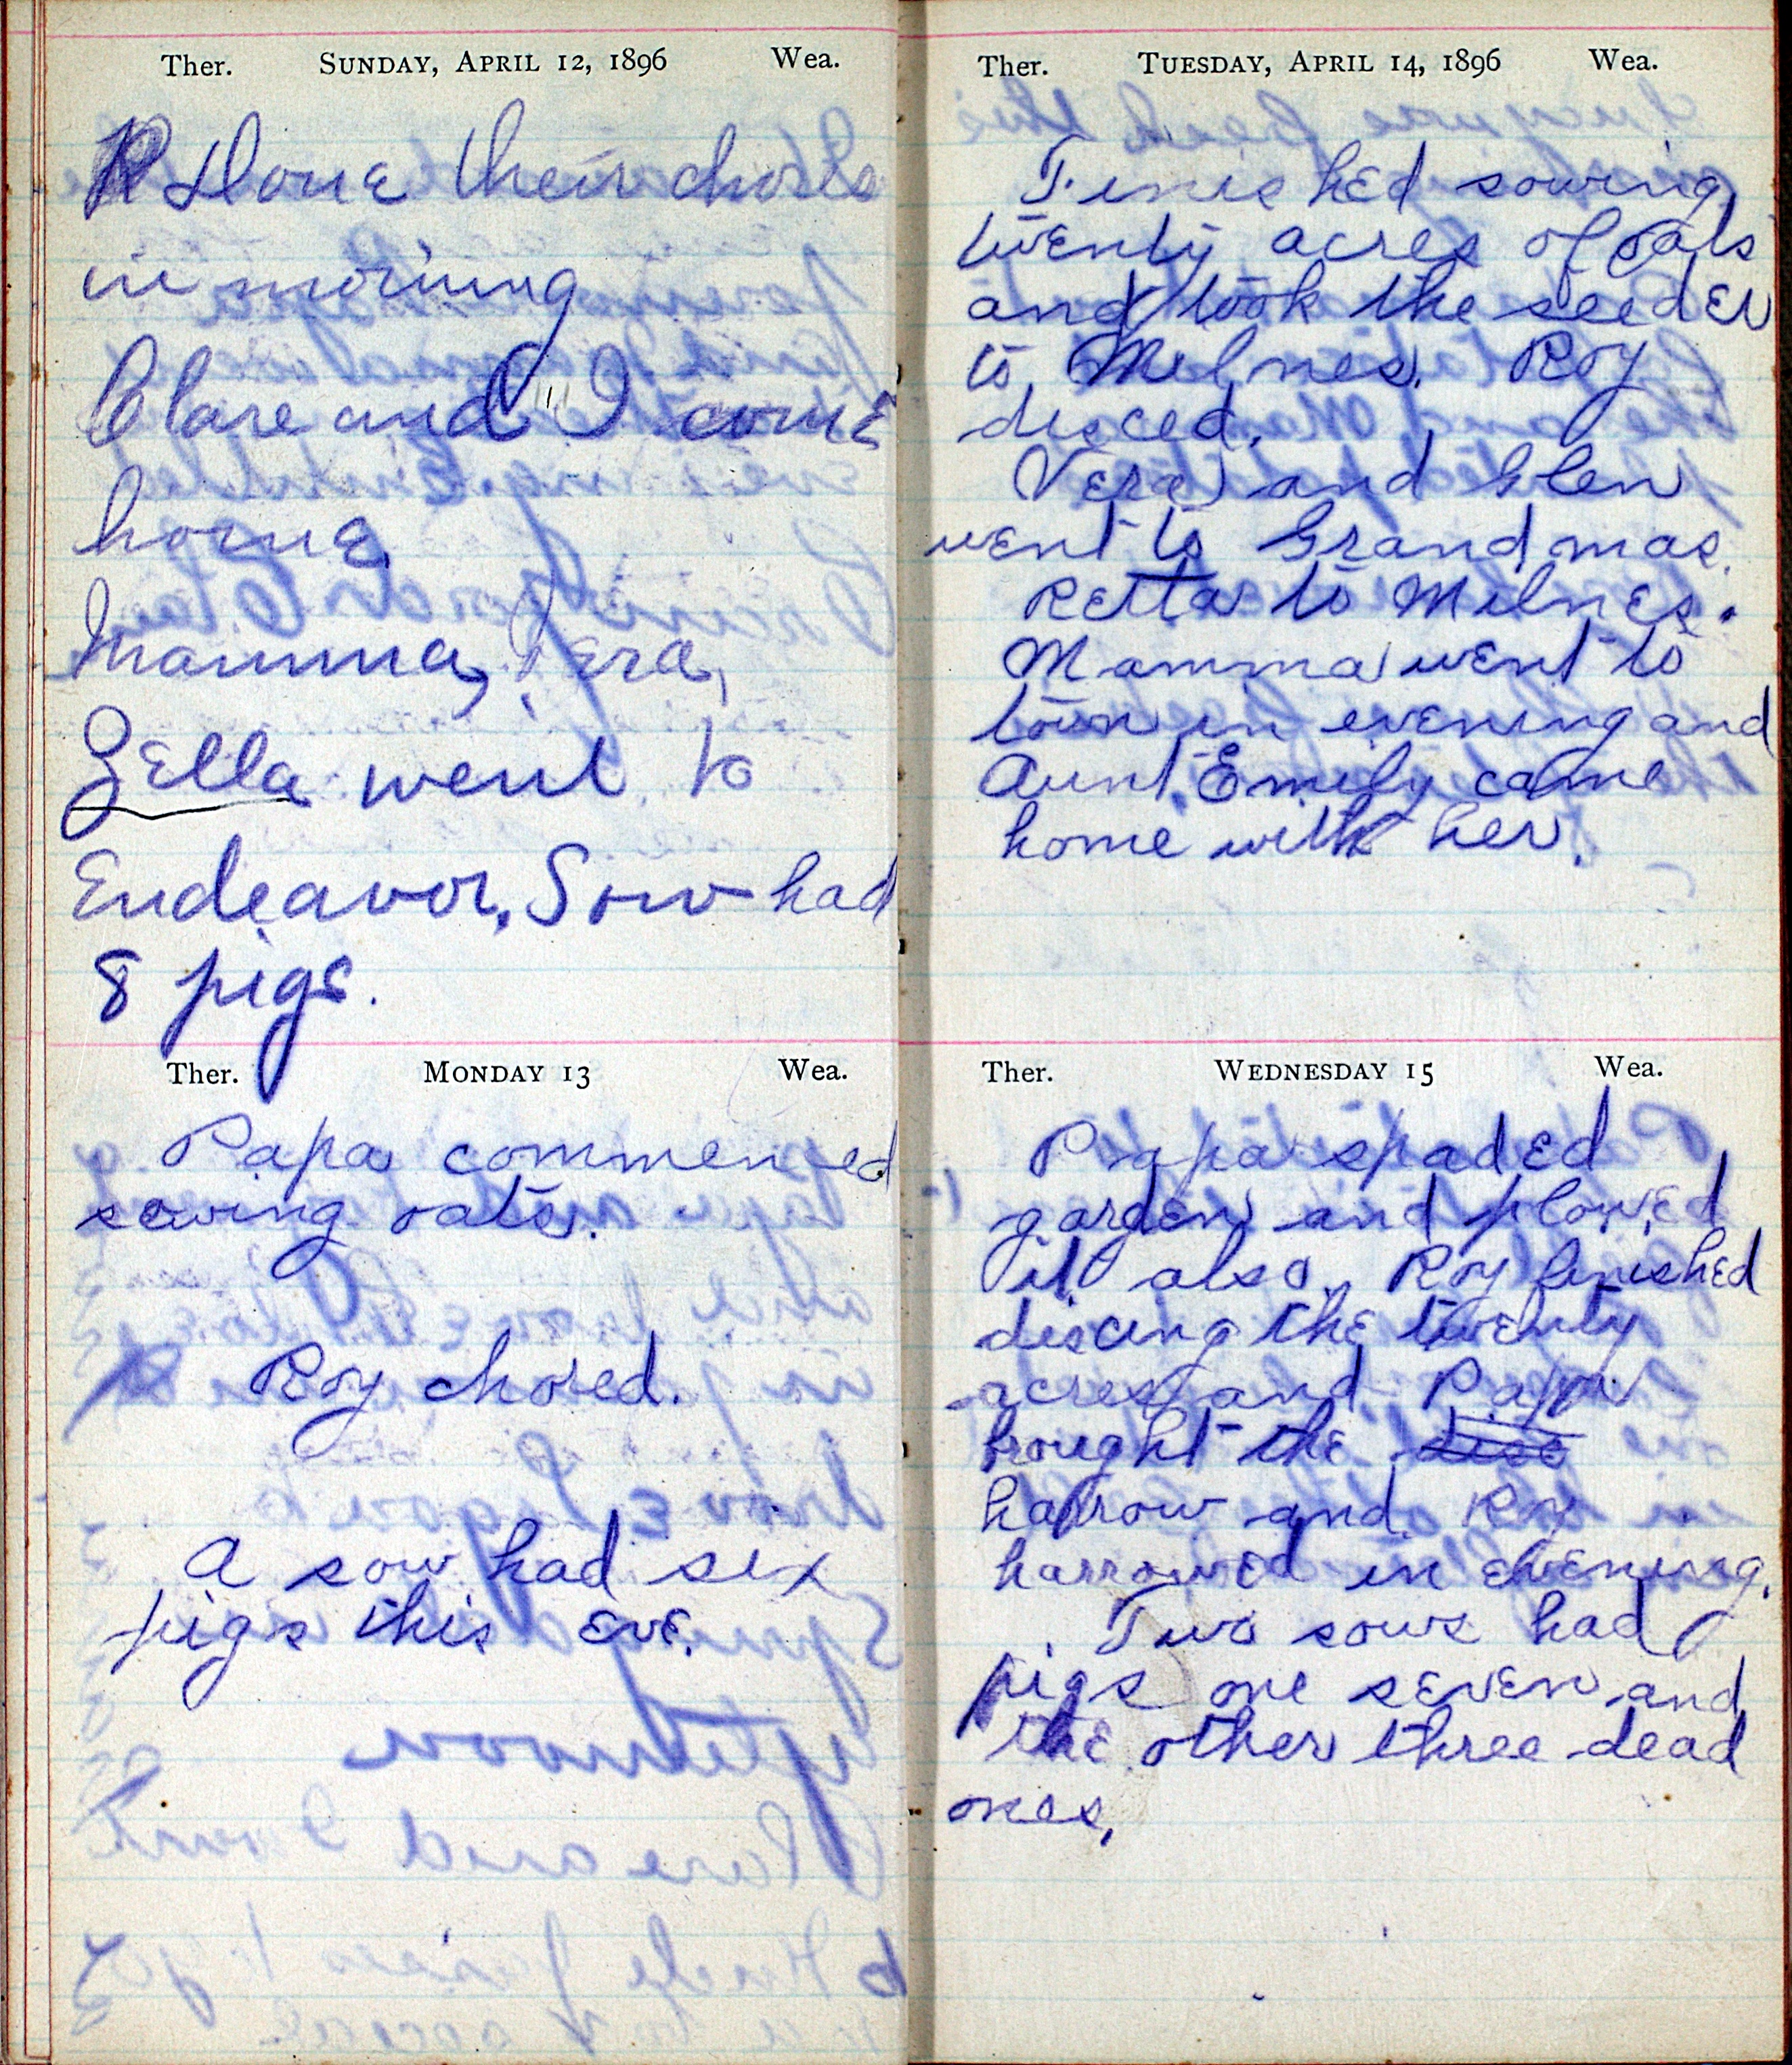 Ther. SUNDAY, APRIL 12, 1896 Wea.
Done their chores
in morning
Clare and I come
home
Mamma, Vera,
Zella went to
Endeavor. Sow had
8 pigs.
Ther. MONDAY 13 Wea.
Papa commenced
sowing oats.
Roy chored.
A sow had six
pigs this eve.
Ther. TUESDAY, APRIL 14, 1896 Wea.
Finished sowing
twenty acres of oats
and took the seeder
to Milnes. Roy
disced.
Vera and Glen
went to Grandmas.
Retta to Milnes.
Mamma went to
town in evening and
Aunt Emily came
home with her.
Ther. WEDNESDAY 15 Wea.
Papa spaded
garden and plowed
it also. Roy finished
discing the twenty
acres and Papa
brought the disc
harrow and Roy
harrowed in evening.
Two sows had
pigs one seven and
the other three dead
ones.